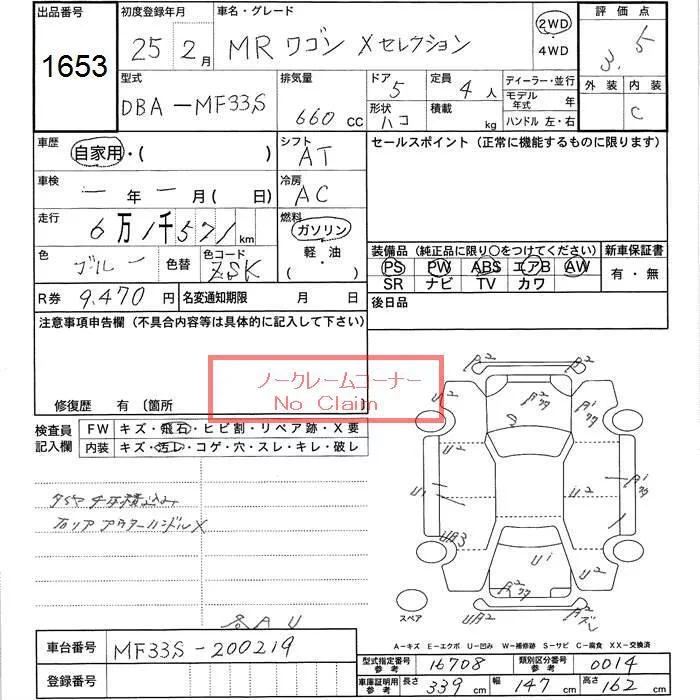 出品番号 初度登録年月 車名・グレード 評価点
1653 25 2月 MR ワゴン Xセレクション 2WD ・ 4WD 3.5
型式 排気量 ドア 5 定員 4人 ディーラー・並行 外装 内装
DBA-MF33S 660 CC 形状 ハコ 積載 kg モデル年式 年 C
ハンドル 左・右
車歴 自家用・( ) シフト AT セールスポイント (正常に機能するものに限ります)
車検 ー年 ー月 ( 日) 冷房 AC
走行 6万1千571km 燃料 ガソリン・軽・油・( )
色 ブルー 色替 色コード ZSK 装備品 (純正品に限り○をつけてください) 新車保証書
PS PW ABS エアB AW 有・無
SR ナビ TV カワ
R券 9,470円 名変通知期限 月 日 後日品
注意事項申告欄 (不具合内容等は具体的に記入して下さい)
ノークレームコーナー
No Claim
修復歴 有 〔箇所
検査員記入欄 FW キズ・飛石・ヒビ割・リペア跡・X要
内装 キズ・汚レ・コゲ・穴・スレ・キレ・破レ
A2 A2
U2 A2 A1 U2
U2 U2
U1 A1
UA3
U1 A2 U2
スペア UA2 Aズレ
各AU
A-キズ E-エクボ U-凹み W-補修跡 S-サビ C-腐食 XX-交換済
車台番号 MF33S-200219
登録番号
型式指定番号 参考 16708 類別区分番号 参考 0014
車庫証明用 参考 長さ 339 cm 幅 147 cm 高さ 162 cm